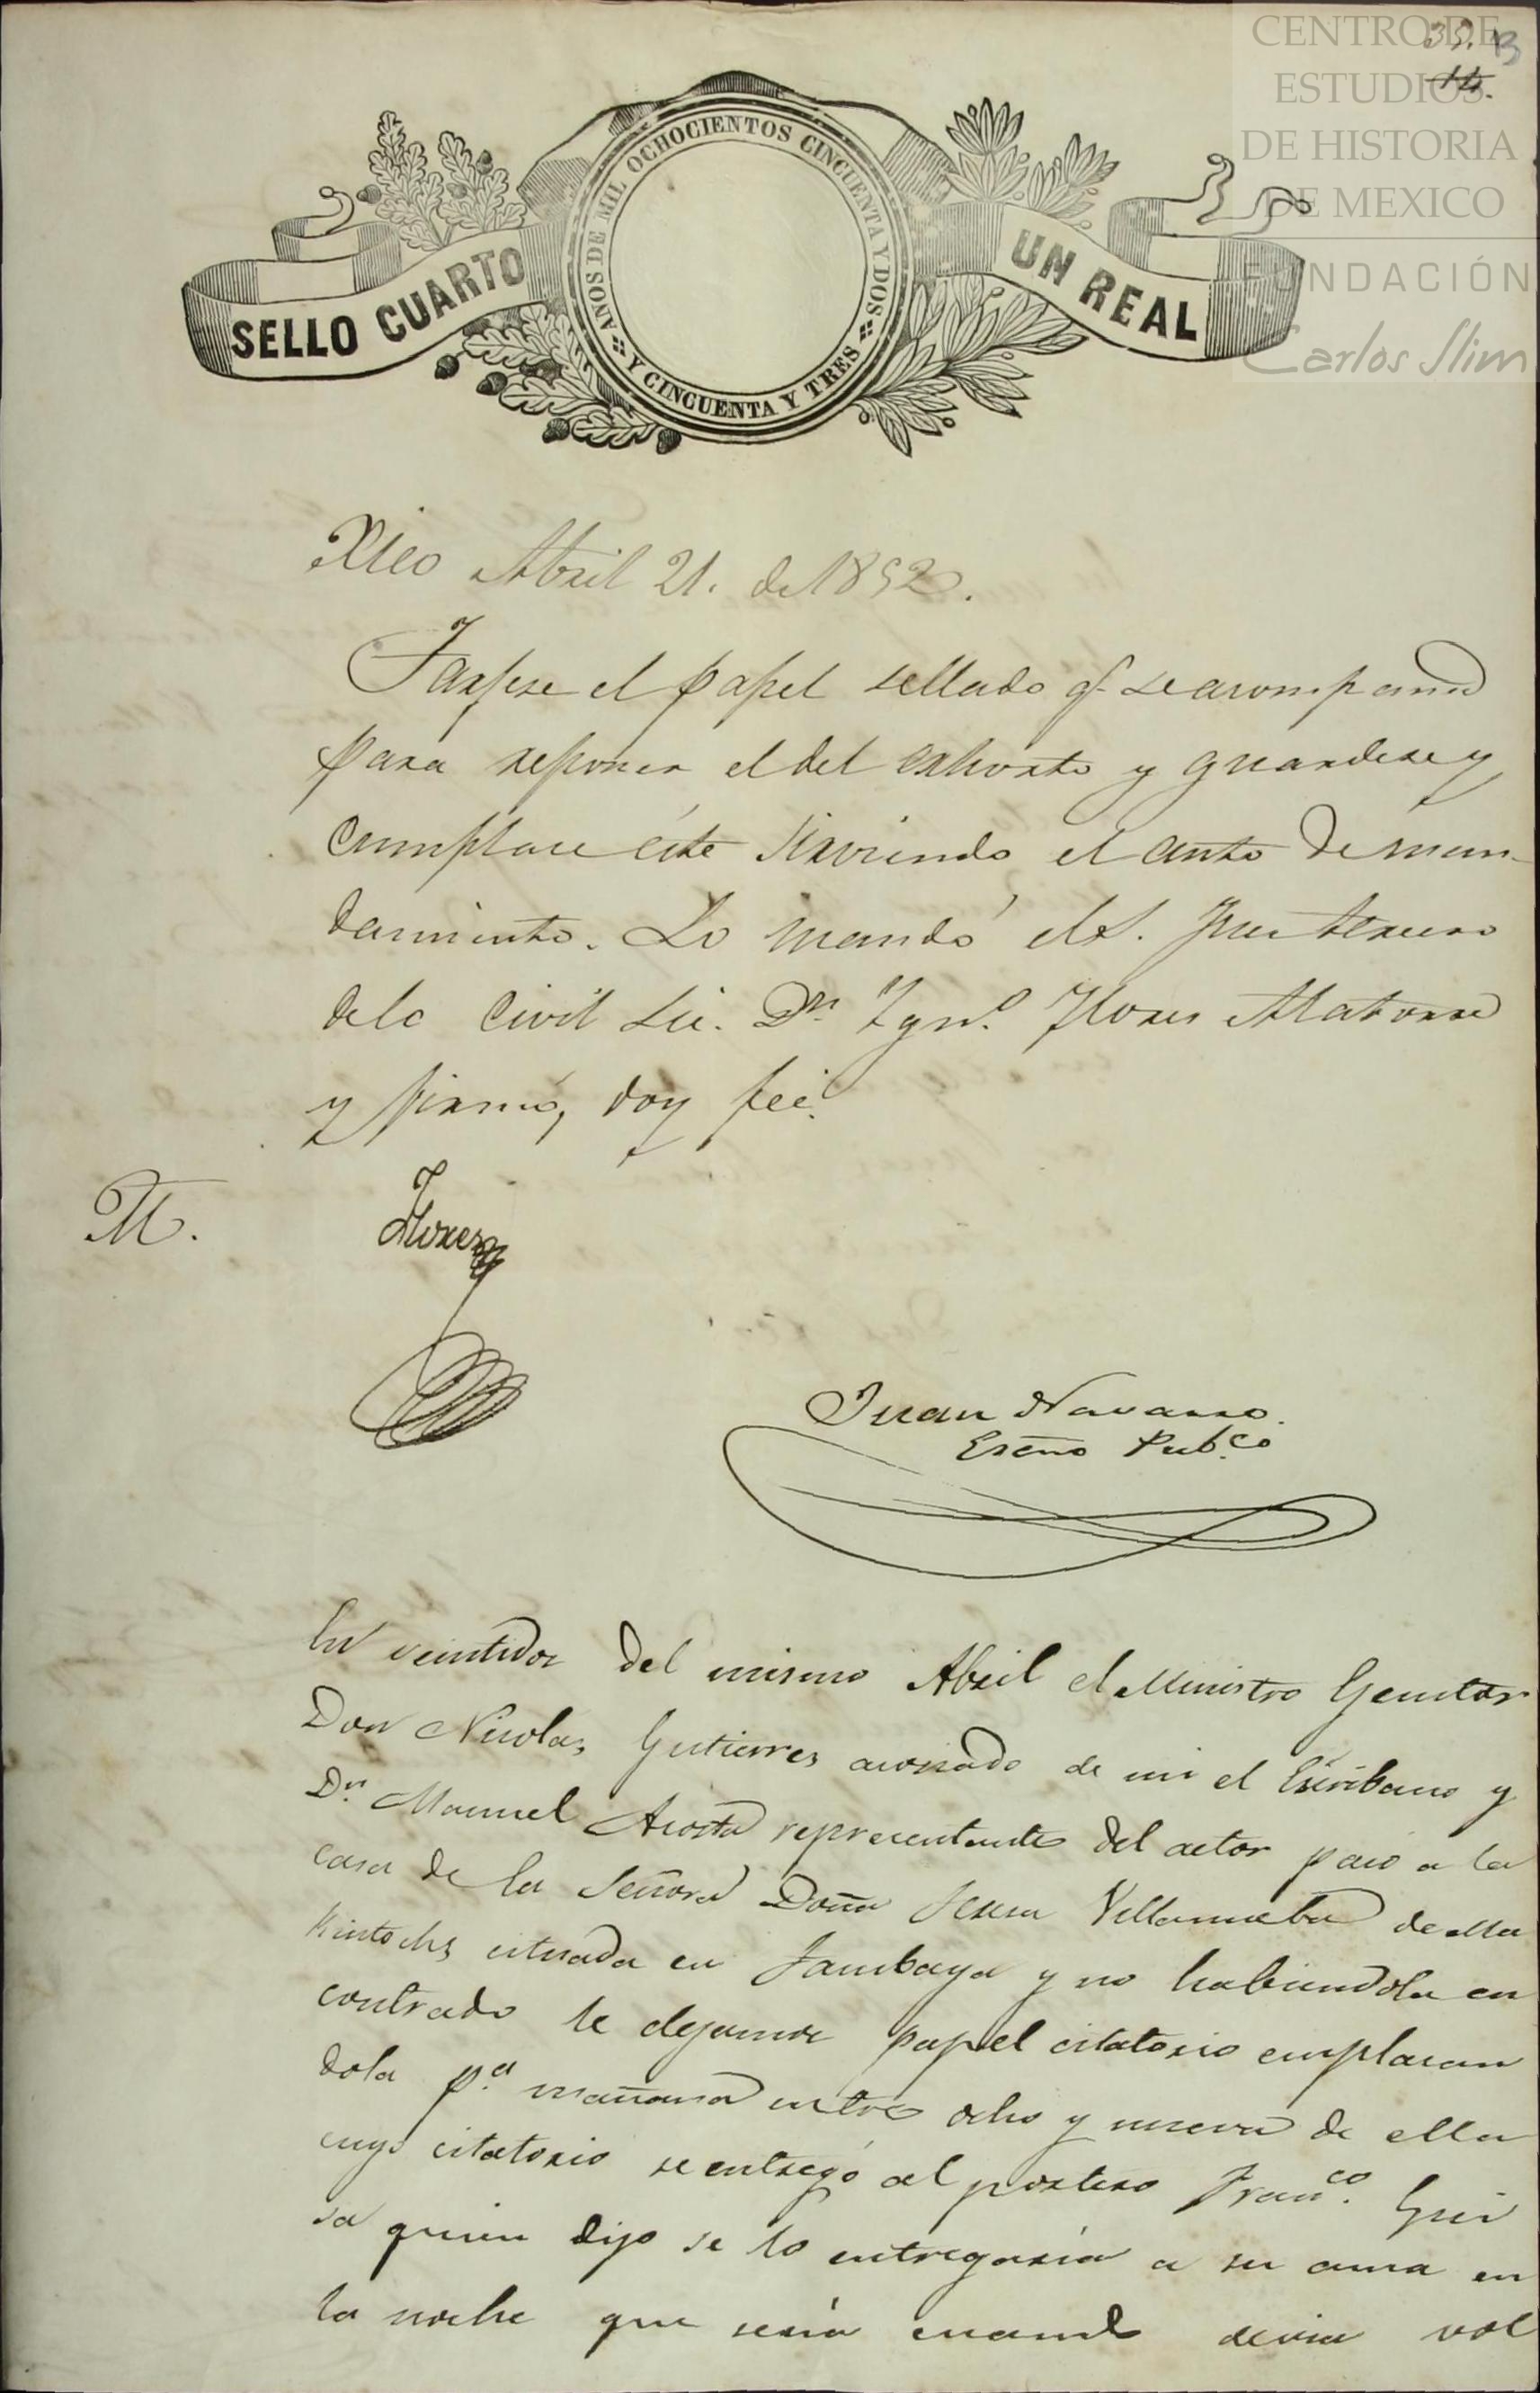 CENTRO DE
ESTUDIOS
DE HISTORIA
DE MEXICO
FUNDACIÓN
Carlos Slim
39. 13
14.
SELLO CUARTO
AÑOS DE MIL OCHOCIENTOS CINCUENTA Y DOS
Y CINCUENTA Y TRES
UN REAL
Mco Abril 21. de 1852.
Taxese el papel sellado q. se acompaña
para reponer el del exhorto y guardese y
cumplase éste sirviendo el auto de man-
damiento. Lo mandó el S. Juez tercero
de lo Civil Lic. Dn. Ygno. Flores Alatorre
y firmó, doy feé.
M.
Flores
Juan Navarro.
Esc̃no Pub.co
En veintidos del mismo Abril el Ministro Egecutor
Don Nicolas Gutierres asosiado de mi el Escribano y
Dn. Manuel Acosta representante del actor pasó a la
casa de la Señora Doña Jesus Villanueba de Ma
kintochs situada en Tambaya y no habiendola en
contrado le dejamos papel citatorio emplasan
dola p.a mañana entre ocho y nueve de ella
cuyo citatorio se entregó al portero Fran.co
sa quien dijo se lo entregaria a su ama en
la noche que seria cuando devia vol